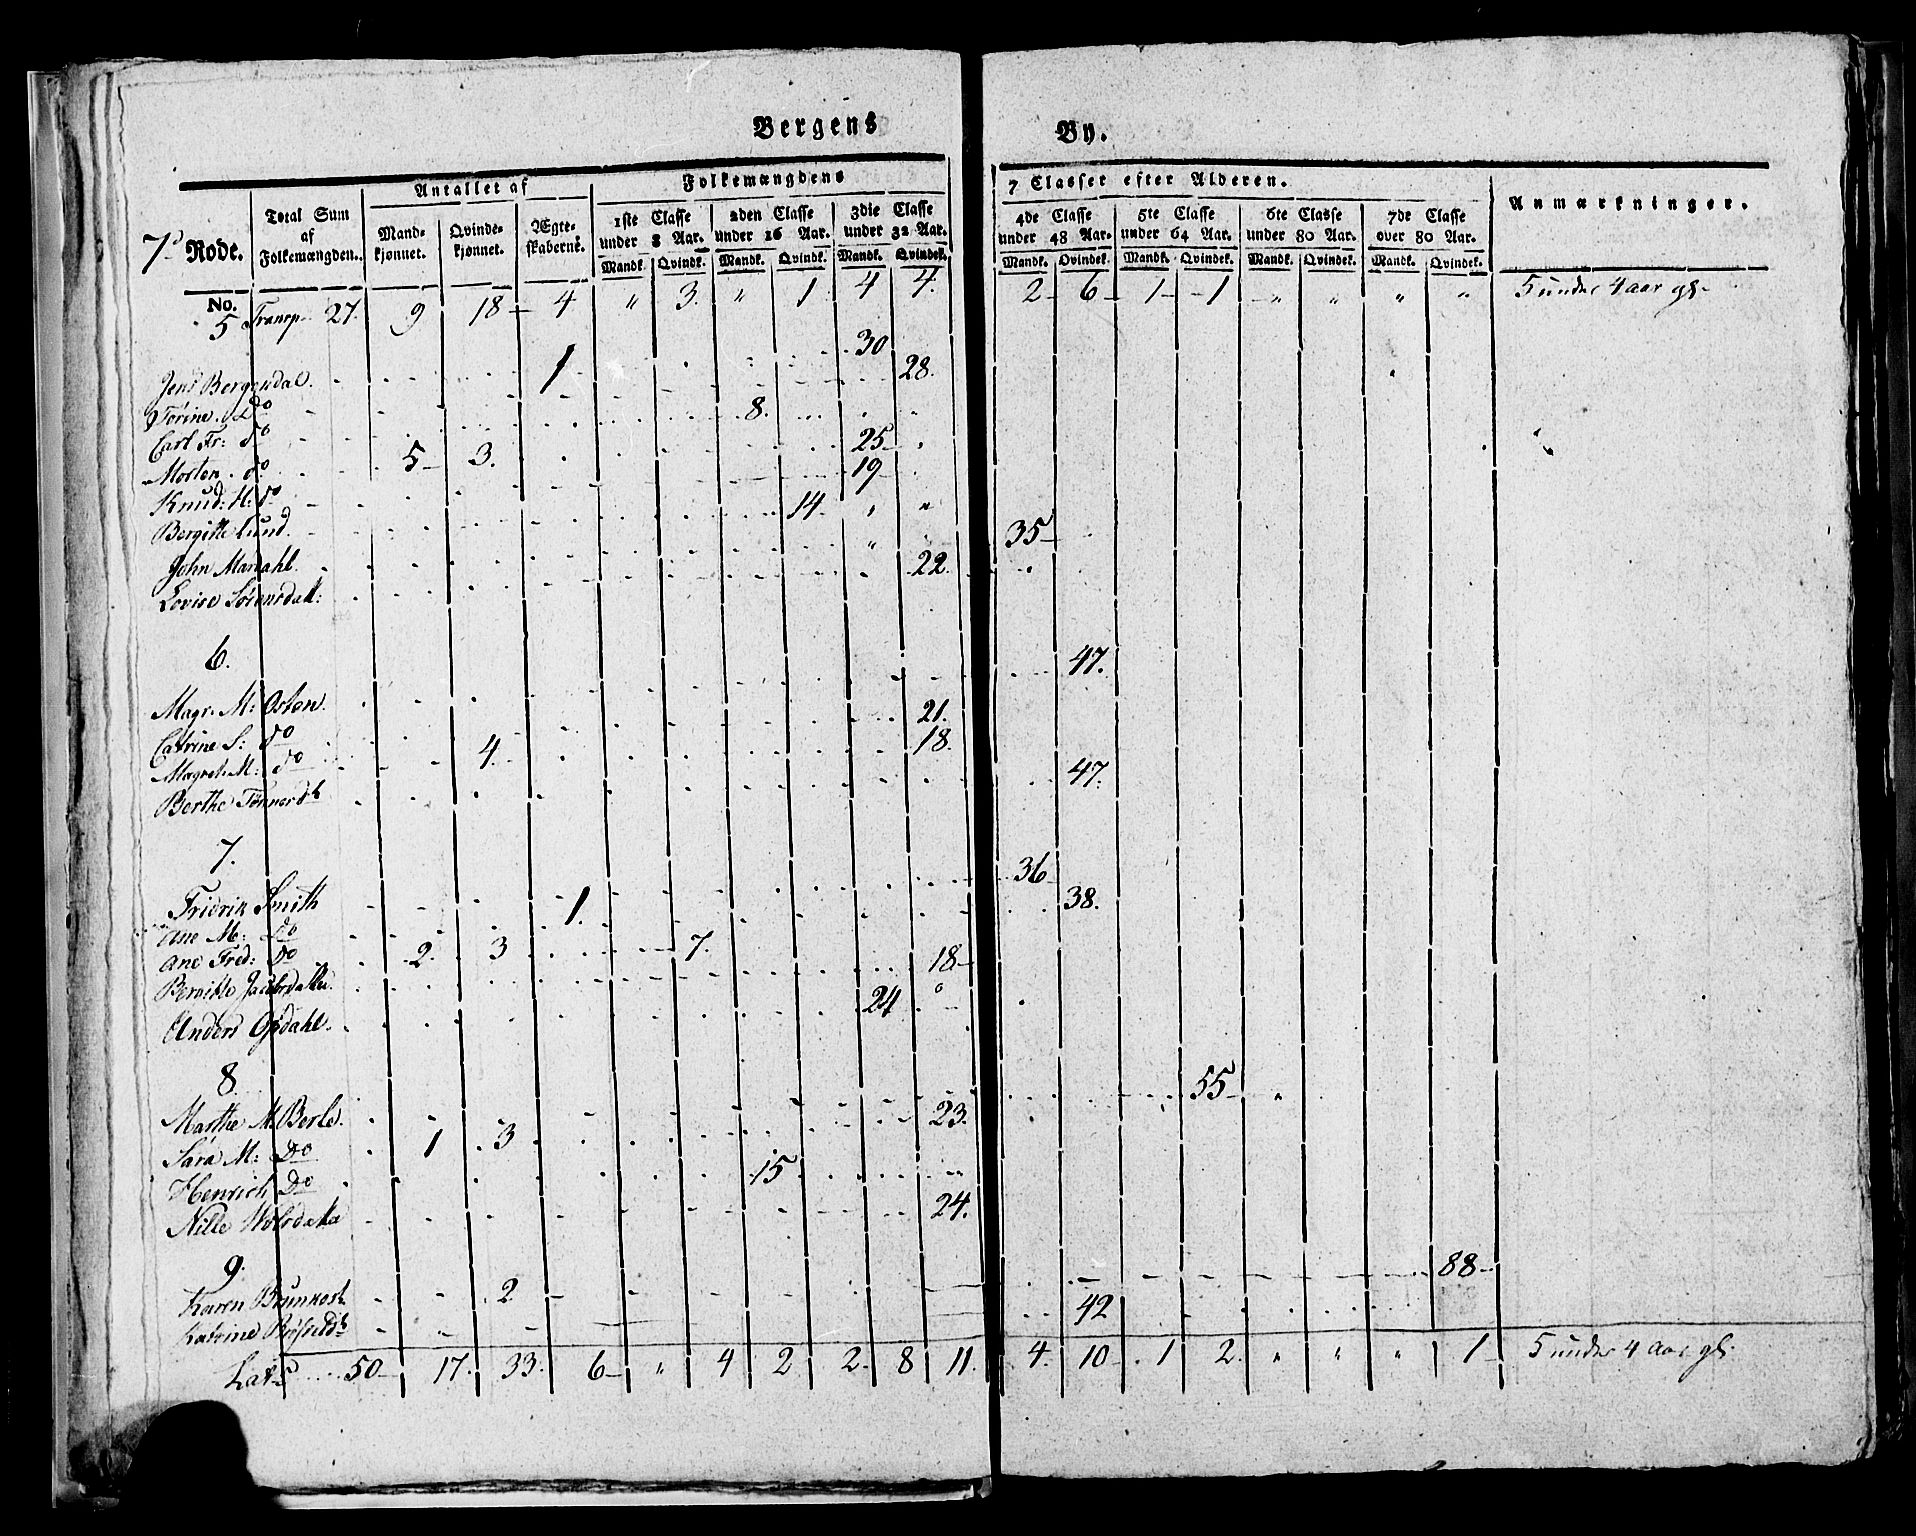 Bergens By.
7de Rode. | Total Sum af Folkemængden. | Antallet af | Folkemængdens | 7 Classer efter Alderen. | Anmærkninger.
Mandkjønnet. | Qvindekjønnet. | Ægteskaberne. | 1ste Classe under 8 Aar. | 2den Classe under 16 Aar. | 3die Classe under 32 Aar. | 4de Classe under 48 Aar. | 5te Classe under 64 Aar. | 6te Classe under 80 Aar. | 7de Classe over 80 Aar.
Mandk. | Qvindk. | Mandk. | Qvindk. | Mandk. | Qvindek. | Mandk. | Qvindek. | Mandk. | Qvindek. | Mandk. | Qvindek. | Mandk. | Qvindek.
No.
5 Transp. 27. 9 18 4 " 3. " 1 4 4. 2 6 1 1 " " " " 5 under 4 aar gl.
Jens Bergendal. 1 30
Torine Do 28.
Carl Fr: do 8.
Morten do 5 3. 25
Knud: H: do 19
Bergitte Lund. 14
John Mardahl. 35
Lovise Sørensdatt: 22.
6.
Magr. M: Osten. 47.
Catrine S: do 21.
Magret. M: do 4. 18.
Berthe Tønnesdt 47.
7.
Fridrik Smith 36
Ane M: Do 1. 38.
Ane Fred: Do 2. 3 7.
Beritte Jacobsdatter. 18
Anders Opdahl. 24
8.
Marthe M. Berle. 55
Sara M: Do 1 3 23.
Henrich Do 15
Nille 24.
9.
Karen Brunkost 2 88
Katrine 42
Lats 50 17. 33. 6 " 4 2 2. 8 11. 4. 10 1 2. " " " 1 5 under 4 aar gl.